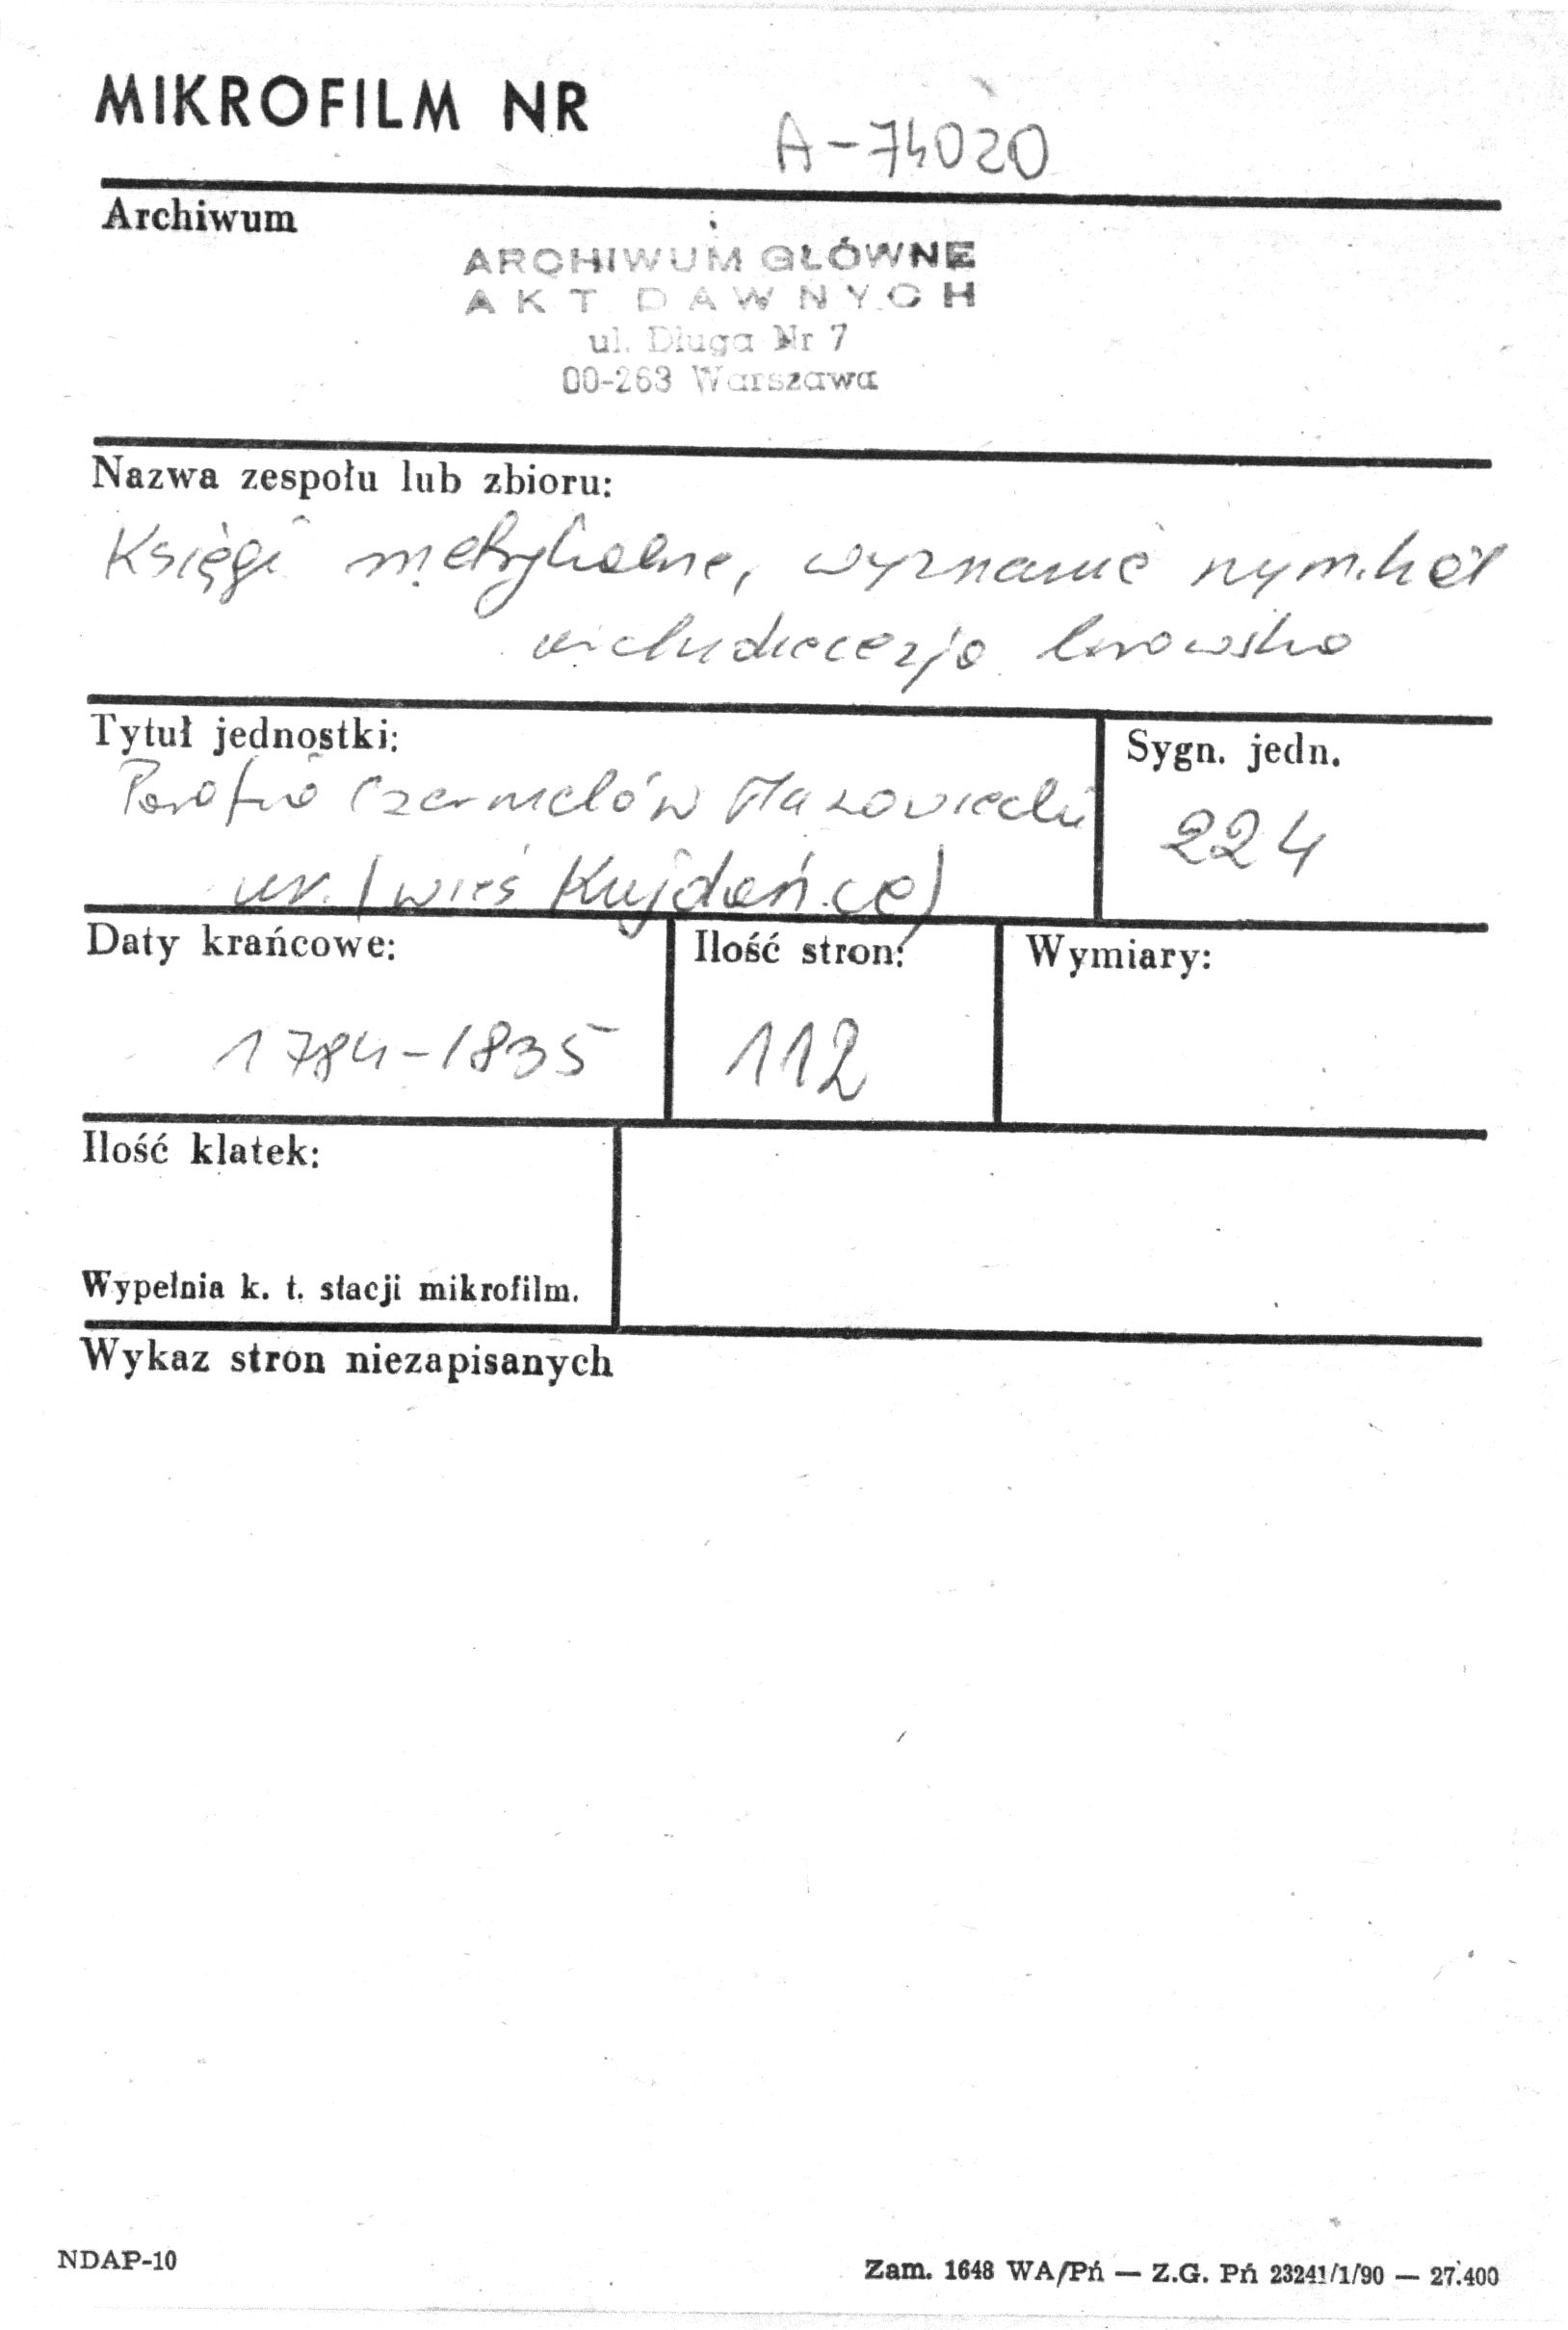 MIKROFILM NR
A-74020
Archiwum
ARCHIWUM GŁÓWNE
AKT DAWNYCH
ul. Długa Nr 7
00-263 Warszawa
Nazwa zespołu lub zbioru:
Księgi metrykalne, wyznanie rzym.kat
archidiecezja lwowska
Tytuł jednostki:
Parafia Czernielów Mazowiecki
(wieś Kujdańce)
Sygn. jedn.
224
Daty krańcowe:
1784-1835
Ilość stron:
112
Wymiary:
Ilość klatek:
Wypełnia k. t. stacji mikrofilm.
Wykaz stron niezapisanych
NDAP-10
Zam. 1648 WA/Pń — Z.G. Pń 23241/1/90 — 27.400